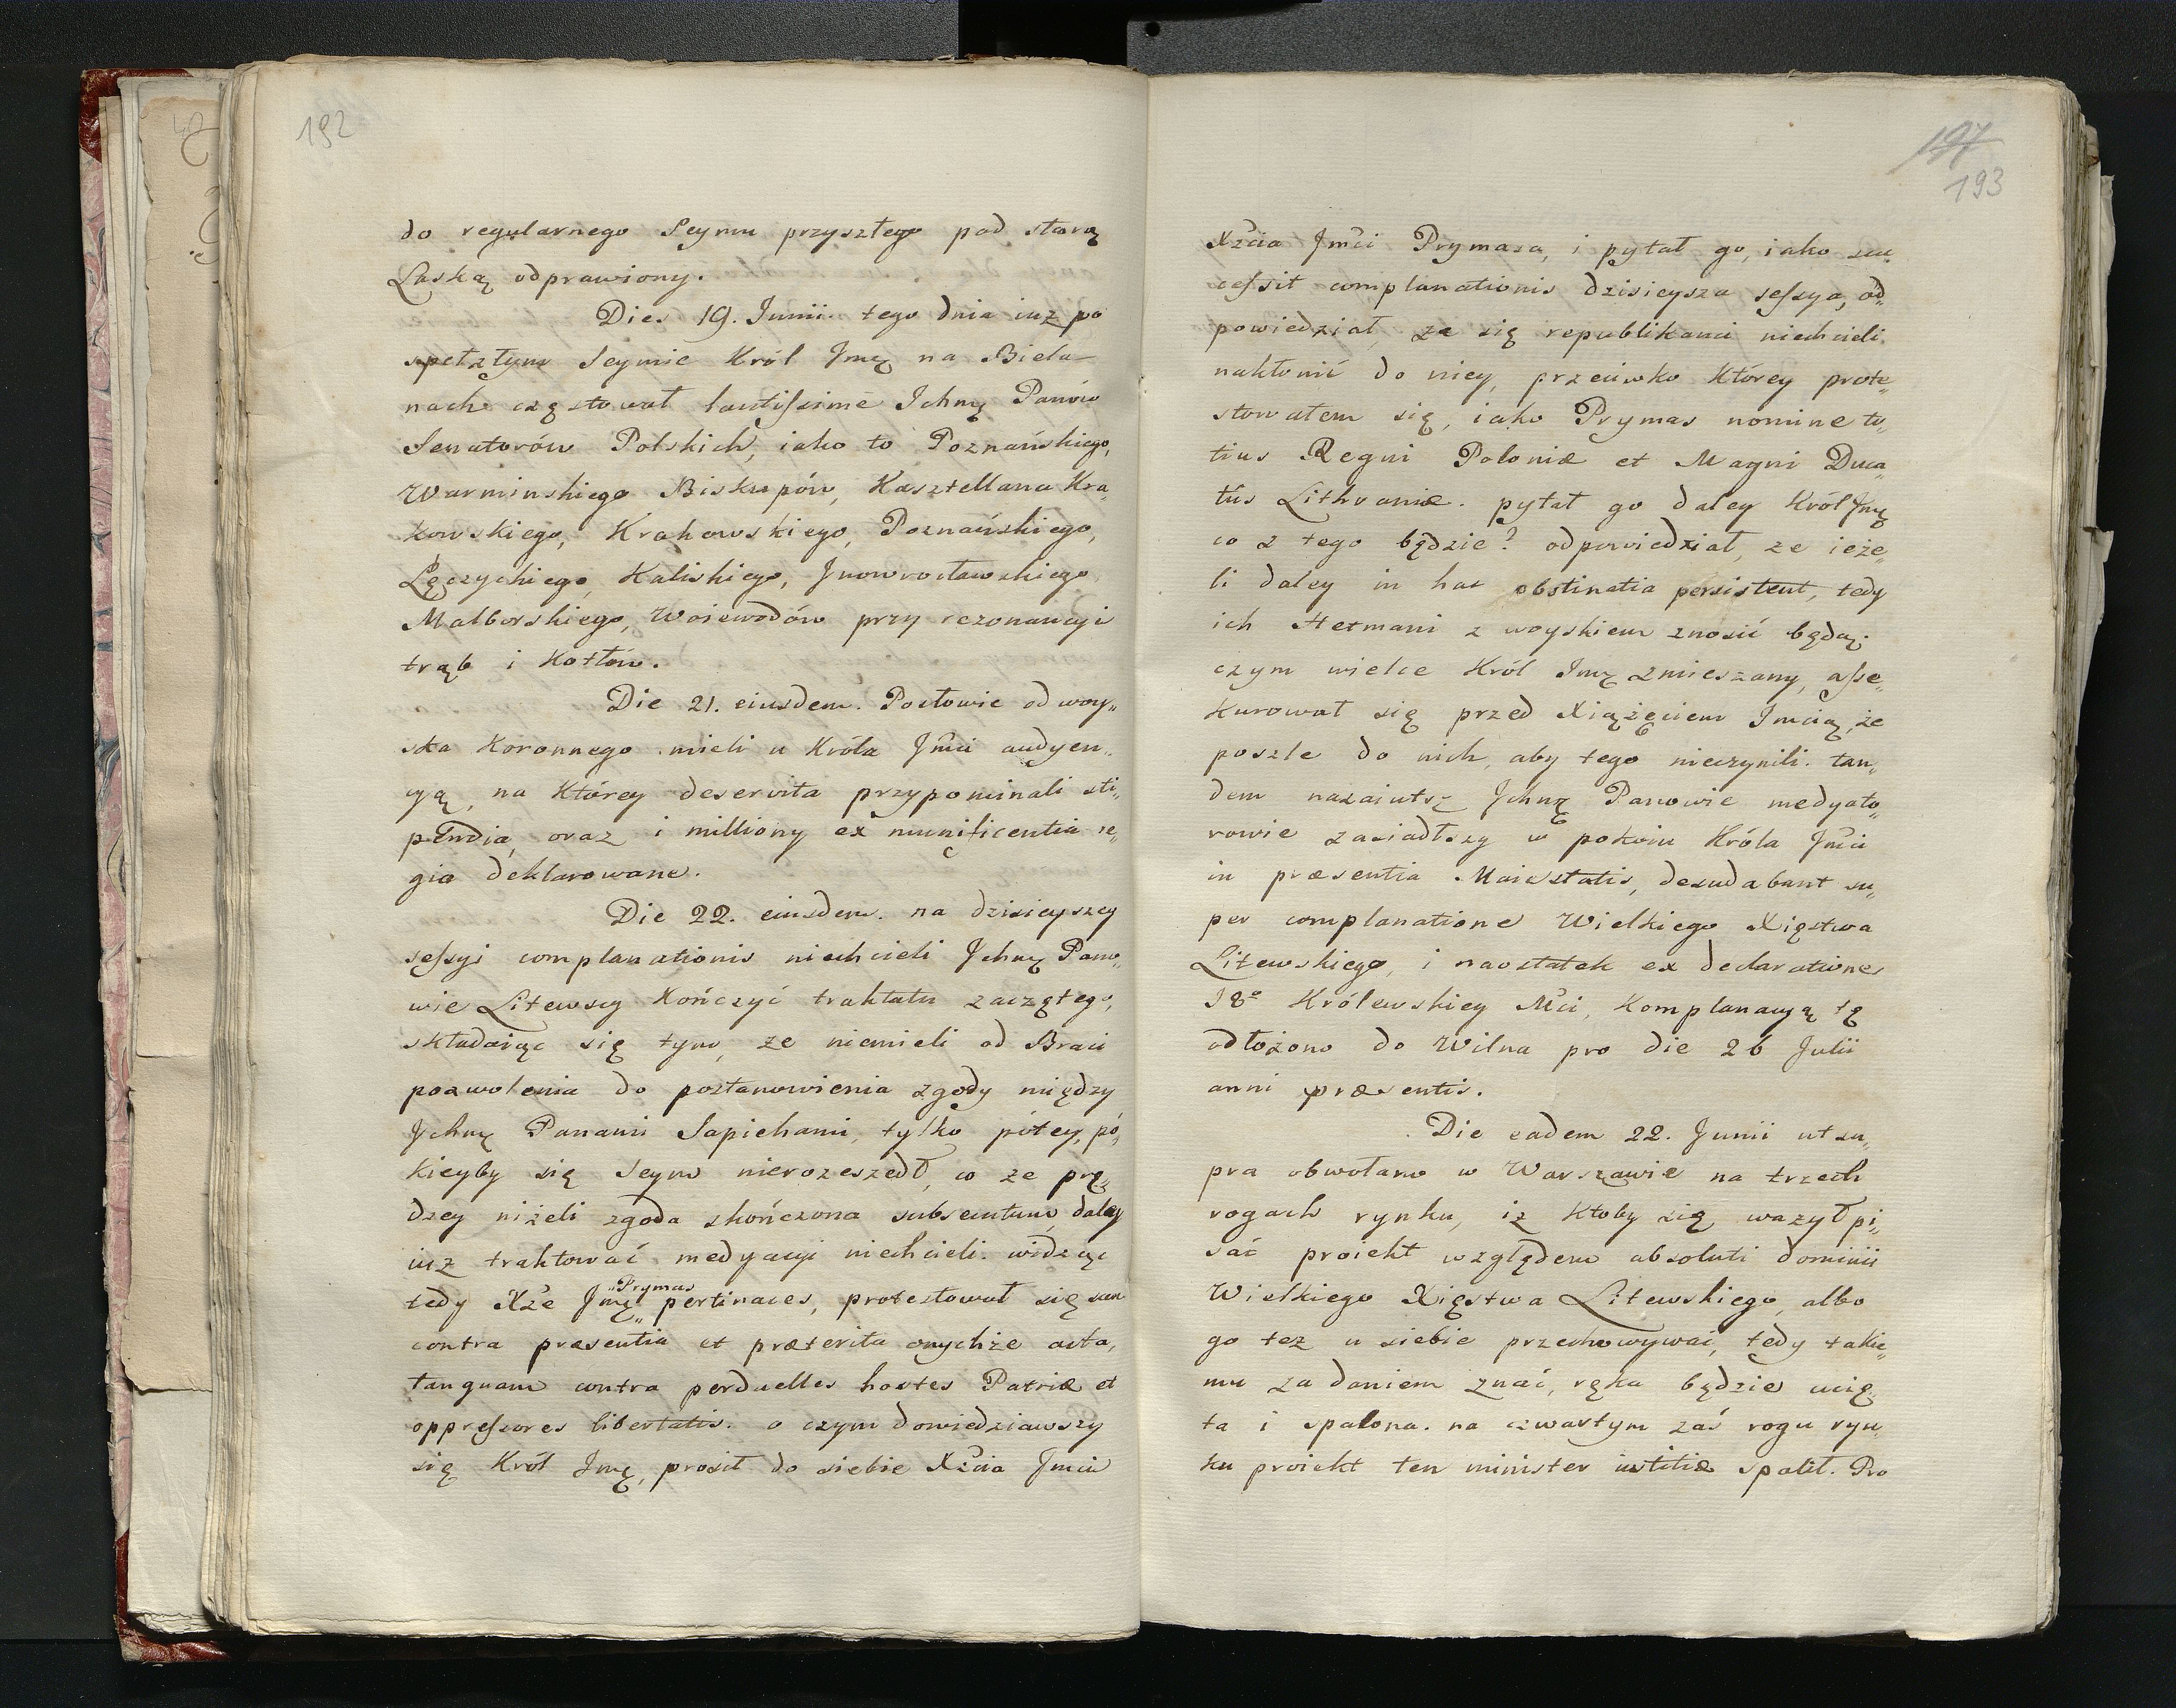 192
do regularnego Seymu przyszłego pod starą
Laską odprawiony.
Dies 19. Junii. tego dnia iuz po
spełzłym Seymie Król Jmę na Biela-
nach częstował lautiſsime Ichmę Panów
Senatorów Polskich, iako to Poznańskiego,
Warminskiego Biskupów, Kasztellana Kra„
kowskiego, Krakowskiego, Poznańskiego,
Łęczyckiego, Kaliskiego, Jnowrocławskiego
Malborskiego, Woiewodów przy rezonancyi
trąb i Kotłow.
Die 21. eiusdem. Posłowie od woy„
ska Koronnego mieli u Króla Jmći audyen„
cyą, na którey deservita przypominali sti„
pendia, oraz i milliony ex munificentia re„
gia deklarowane.
Die 22. eiusdem. na dzisieyszey
seſsyi complanationis niechcieli Jchmę Pano„
wie Litewscy Kończyć traktatu zaczętego,
składaiąc się tym, ze niemieli od Braci
pozwolenia do postanowienia zgody między
Jchmę Panami Sapiehami, tylko pótey, pó„
kieyby się Seym nierozeszedł, co ze prę„
dzey niżeli zgoda skończona subsecutum, daley
iuz traktować medyacyi niechcieli. widząc
tedy Xże Jmę „Prymas„ pertinaces, protestował się sam
contra præsentia et præterita onychże acta,
tanquam contra perduelles hostes Patriæ et
oppreſsores libertatis. o czym dowiedziawszy
się Król Jmę, prosił do siebie Xćia Jmći
197
193
Xźćia Jmći Prymasa, i pytał go, iako suc„
ceſsit complanationis dzisieysza seſsya, od„
powiedział, ze się republikanci niechcieli
nakłonić do niey, przeciwko Którey prote„
stowałem się, iako Prymas nomine to„
tius Regni Poloniæ et Magni Duca„
tûs Lithvaniæ. pytał go daley Król Jmę
co z tego będzie? odpowiedział, ze ieże„
li daley in hac obstinatia persistent, tedy
ich Hetmani z woyskiem znosić będą.
czym wielce Król Jmę zmieszany, aſse„
kurował się przed Xiążęciem Jmcią, że
poszle do nich, aby tego nieczynili. tan„
dem nazaiutrz Jchmę Panowie medyato„
rowie zasiadłszy w pokoiu Króla Jmći
in præsentia Maiestatis, desudabant su„
per complanatione Wielkiego Xięstwa
Litewskiego, i naostatek ex declaratione
J8º Królewskiey Mći, Komplanacyą tę
odłożono do Wilna pro die 26 Julii
anni præsentis.
Die eadem 22. Junii ut su„
pra obwołano w Warszawie na trzech
rogach rynku, iz ktoby się wazył pi„
sać proiekt względem absoluti dominii
Wielkiego Xięstwa Litewskiego, albo
go tez u siebie przechowywać, tedy takie„
mu za daniem znać, ręka będzie ucię„
ta i spalona. na czwartym zaś rogu ryn„
ku proiekt ten minister iustitiæ spalił. Pro